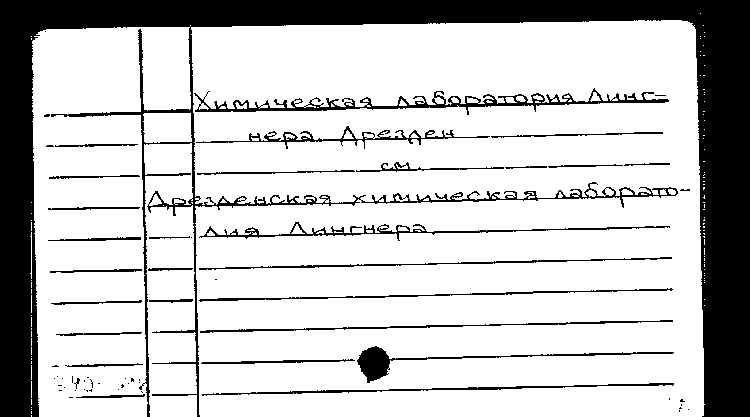 Химическая лаборатория Линг=
нера. Дрезден
см.
Дрезденская химическая лаборато-
лия Лингнера.